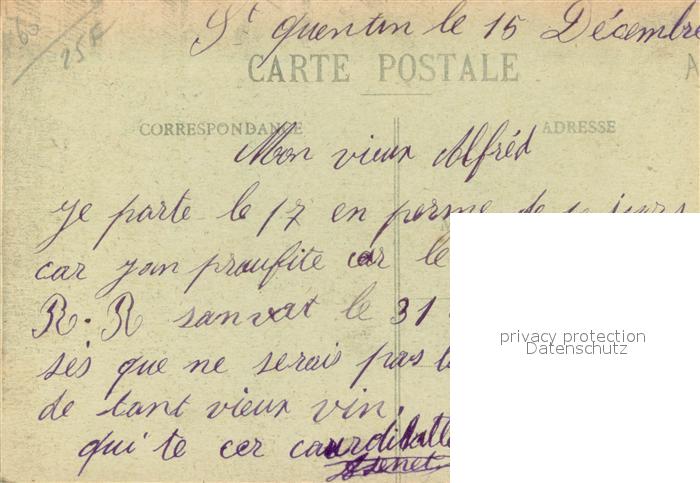 65
25F
St quentin le 15 Décembre
CARTE POSTALE
A
CORRESPONDANCE
ADRESSE
Mon vieux Alfréd
Je parte le 17 en perme de jours
car jan proufite car le
R. R sanvat le 31
sés que ne serais pas
de tant vieux vin.
qui te cer
privacy protection
Datenschutz